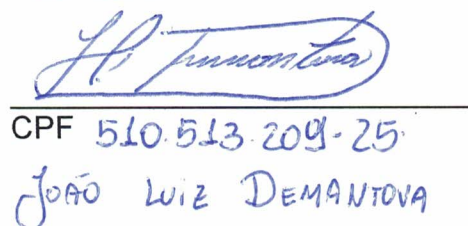 CPF 510.513.209-25
JOÃO LUIZ DEMANTOVA